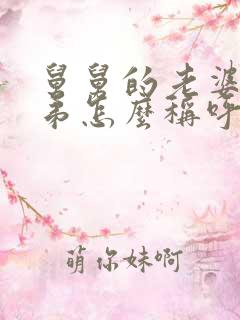 舅舅的老婆
弟怎麼稱呼
萌你妹啊